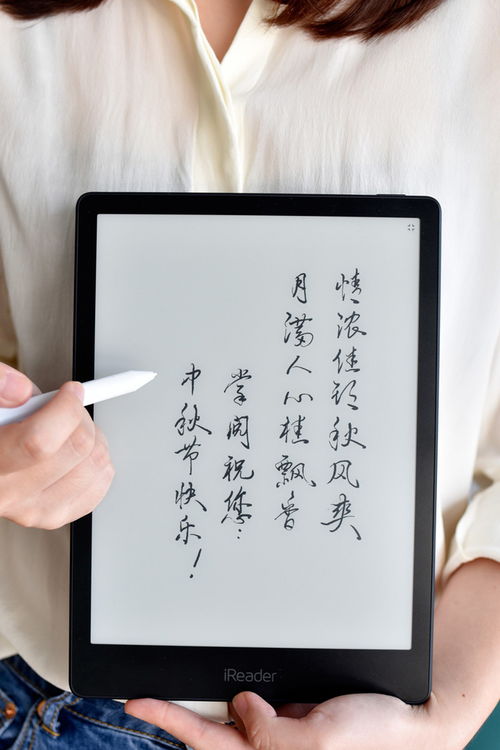 情浓佳节秋风爽
月满人心桂飘香
掌阅祝您：
中秋节快乐！
iReader